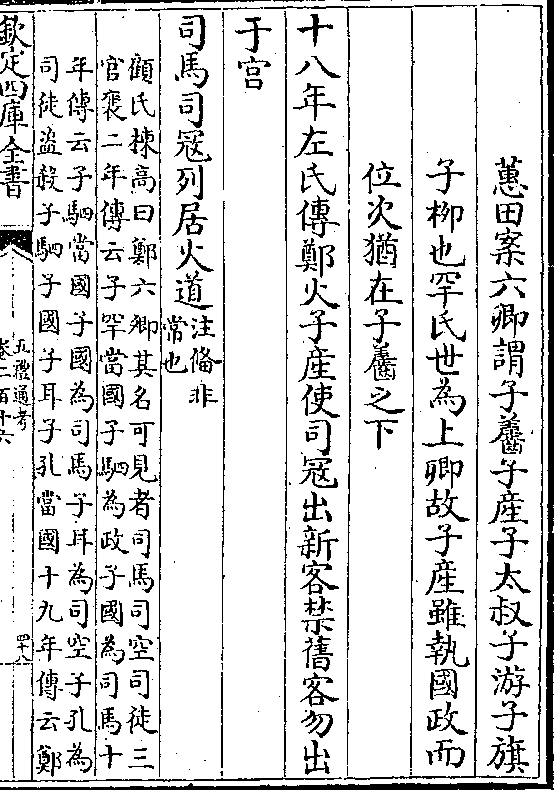 蕙田案六卿謂子齹子産子太叔子游子旗
子柳也罕氏世為上卿故子産雖執國政而
位次猶在子齹之下
十八年左氏傳鄭火子産使司寇出新客禁舊客勿出
于宫
司馬司寇列居火道注備非
常也
顧氏棟高曰鄭六卿其名可見者司馬司空司徒三
官襄二年傳云子罕當國子駟為政子國為司馬十
年傳云子駟當國子國為司馬子耳為司空子孔為
司徒盗殺子駟子國子耳子孔當國十九年傳云鄭
欽定四庫全書
五禮通考
卷二百十六
四十八